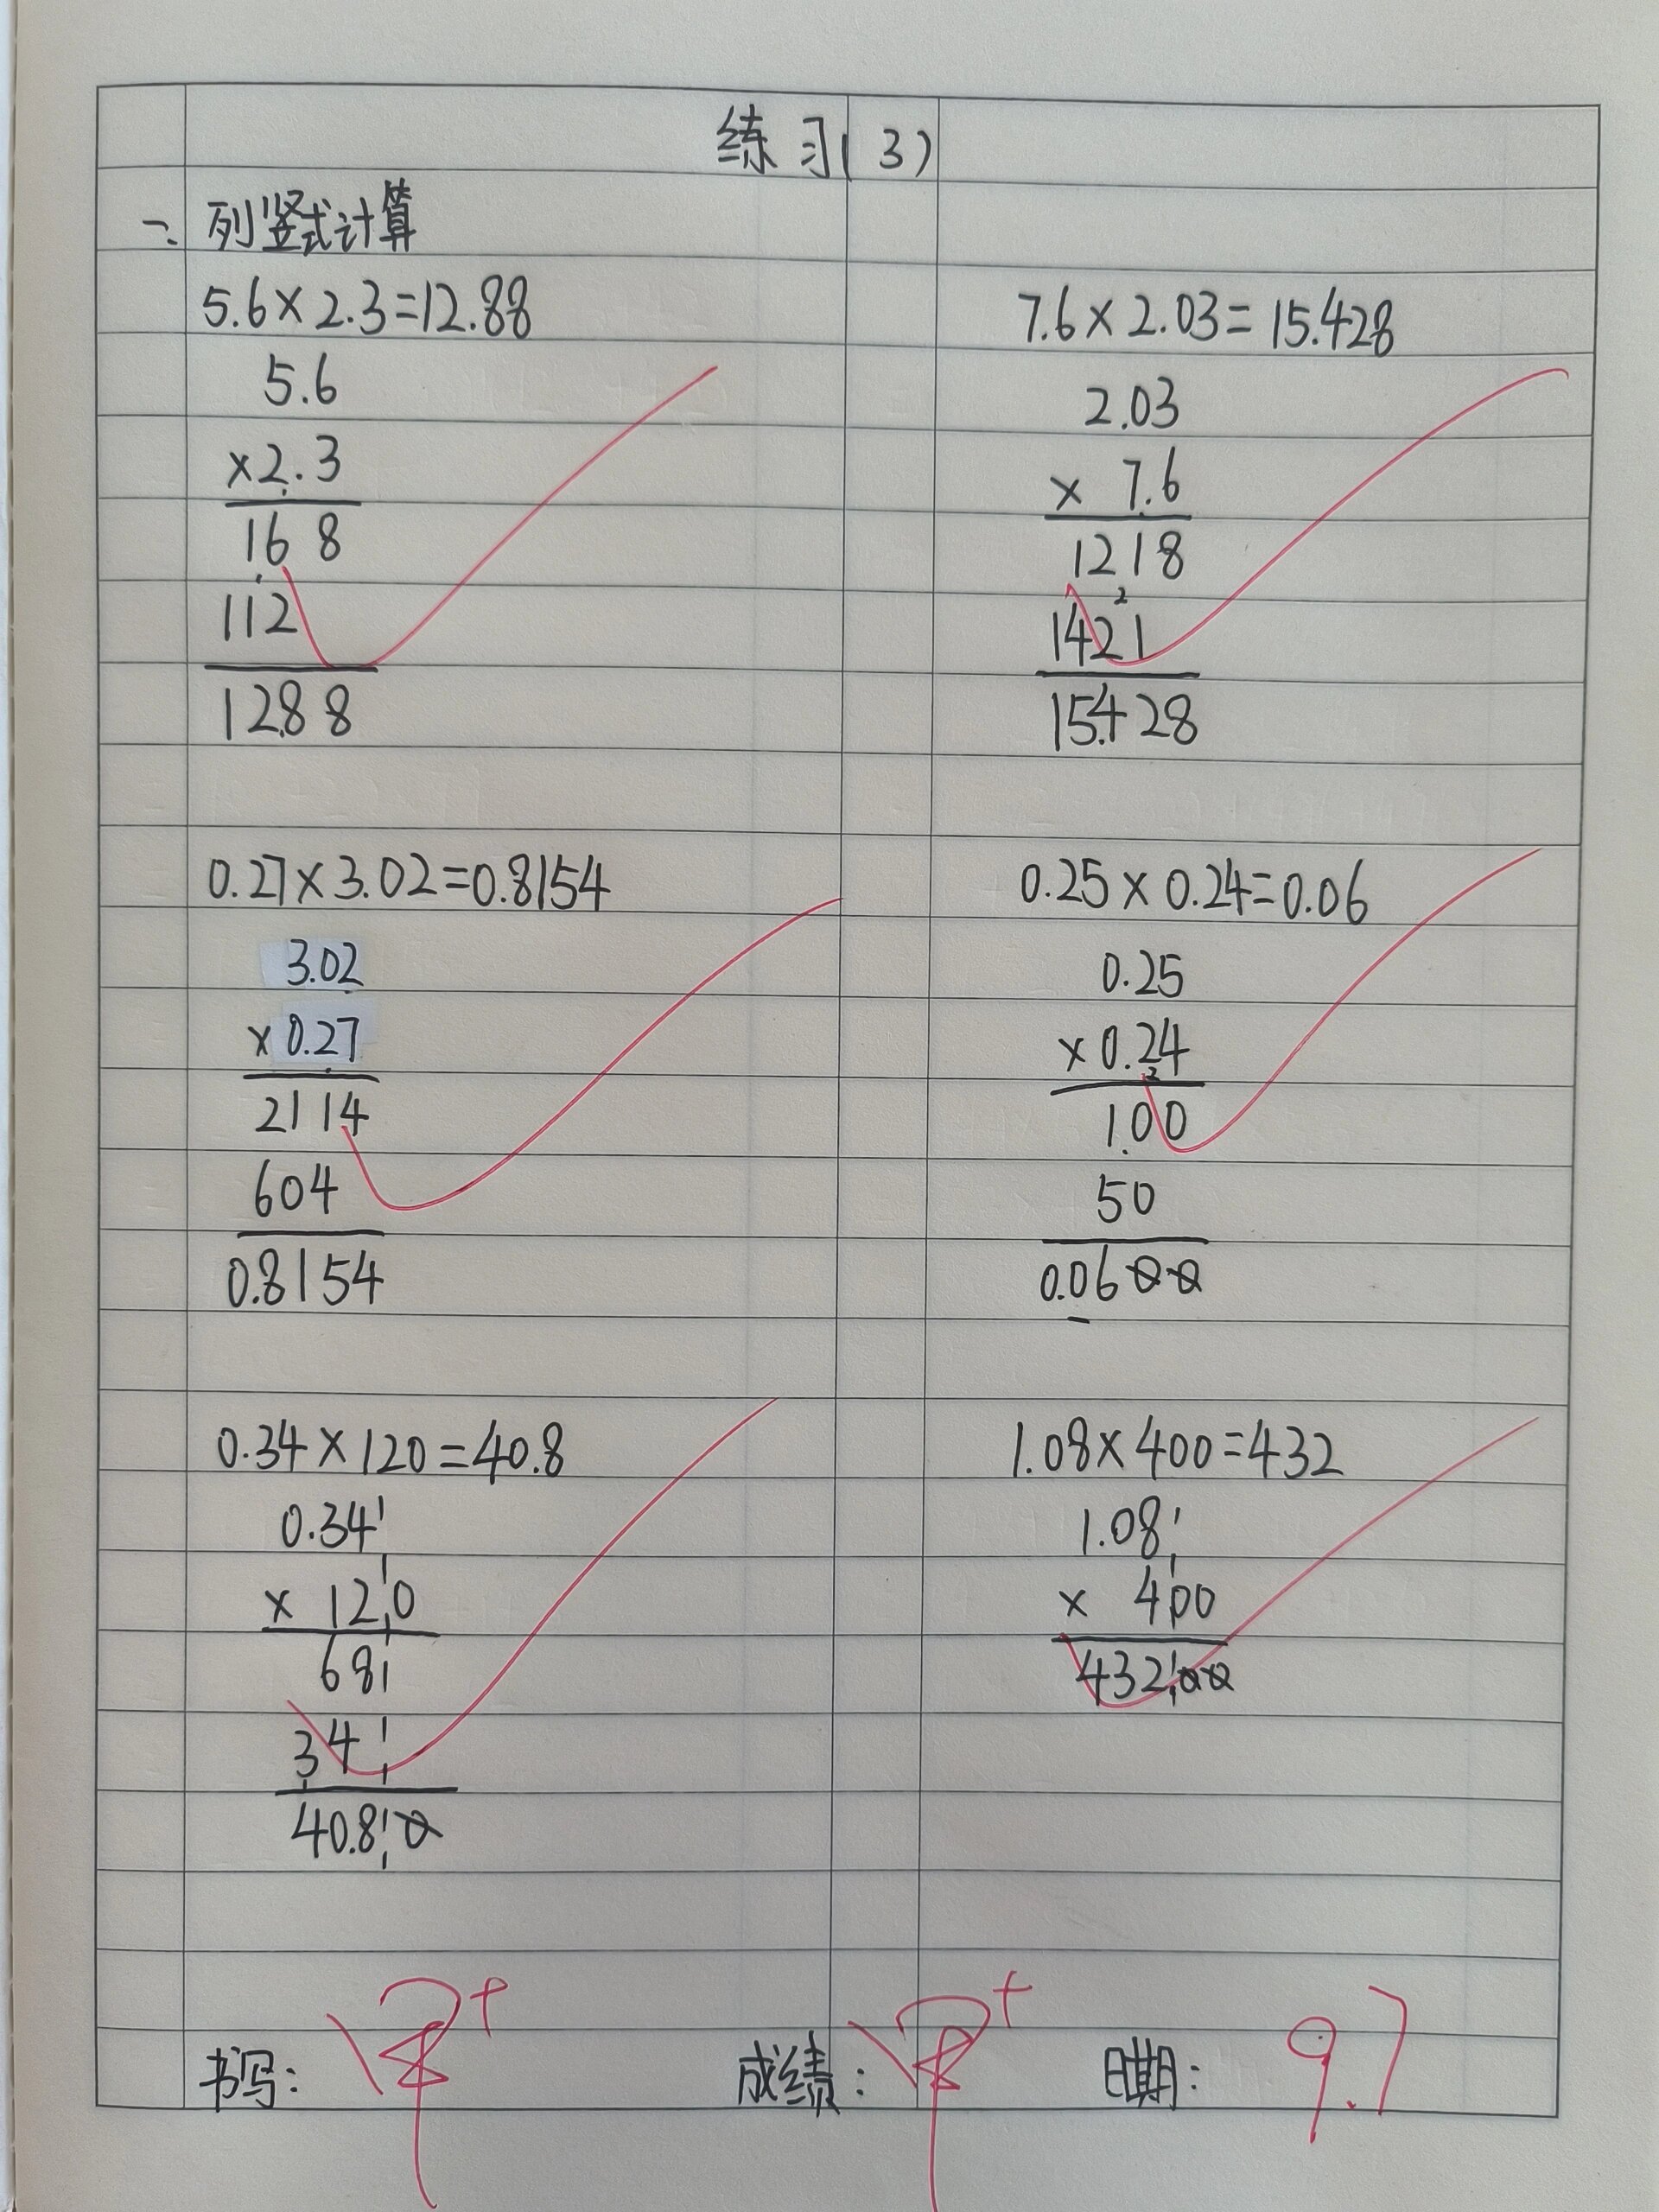 练习(3)
一、列竖式计算
5.6×2.3=12.88
5.6
×2.3
16 8
112
12.88
7.6×2.03=15.428
2.03
× 7.6
1218
2
1421
15.428
0.27×3.02=0.8154
3.02
×0.27
2114
604
0.8154
0.25×0.24=0.06
0.25
×0.24
2
1.00
50
0.0600
0.34×120=40.8
0.34
× 120
68
34
40.80
1.08×400=432
1.08
× 400
432.00
书写: 优+ 成绩: 优+ 日期: 9.7